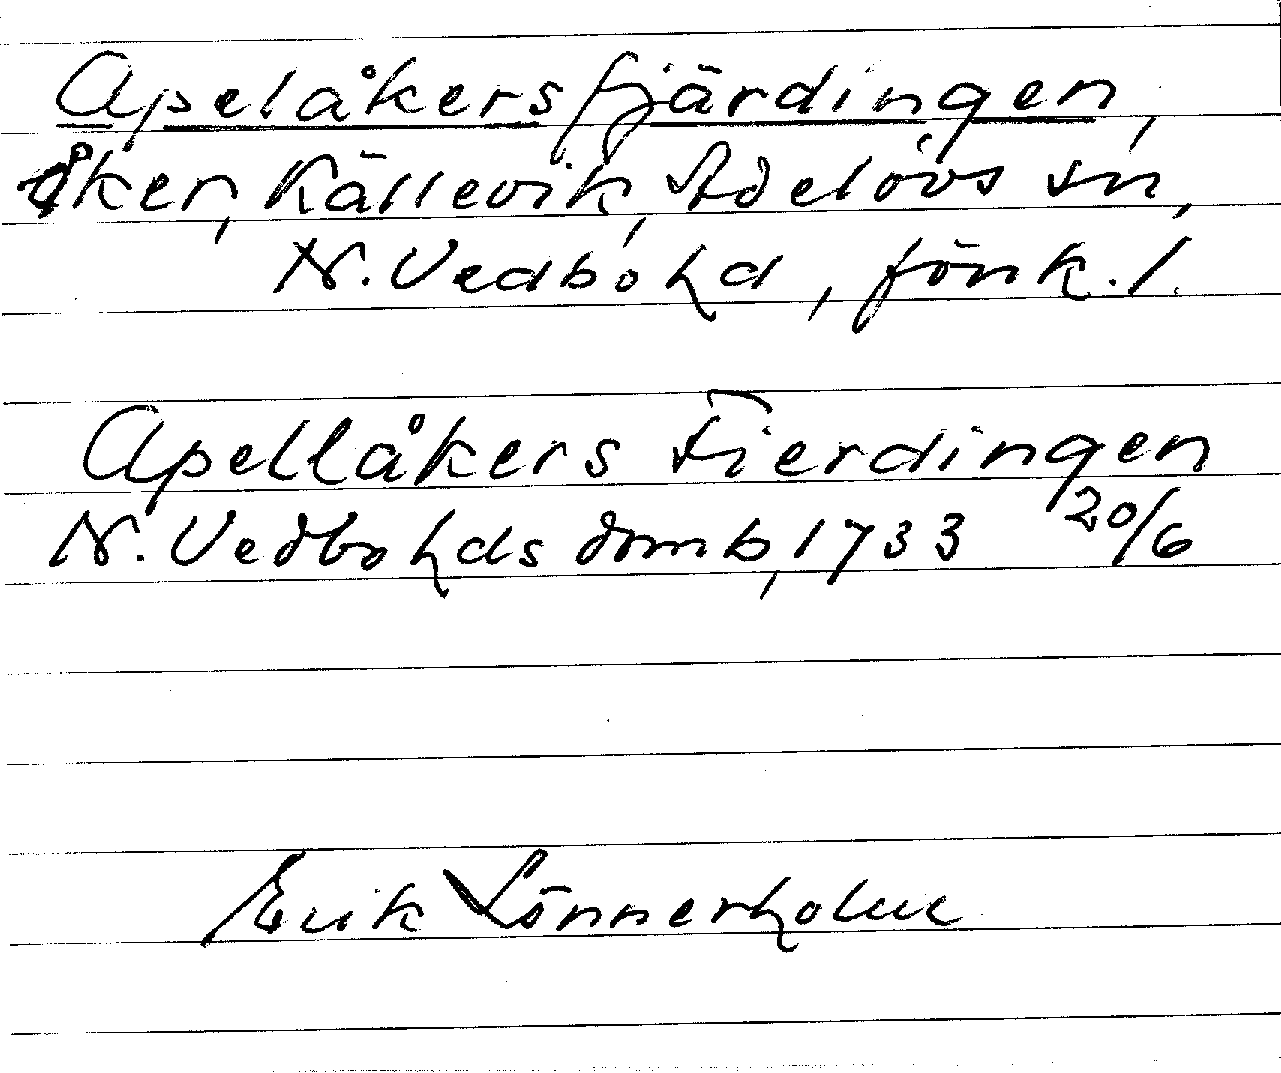 Apelåkersfjärdingen,
åker, Källevik, Adelövs sn,
N. Vedbohd, Jönk. l.
Apellåkers Fierdingen
N. Vedbohds domb, 1733 20/6
Erik Lönnerholm